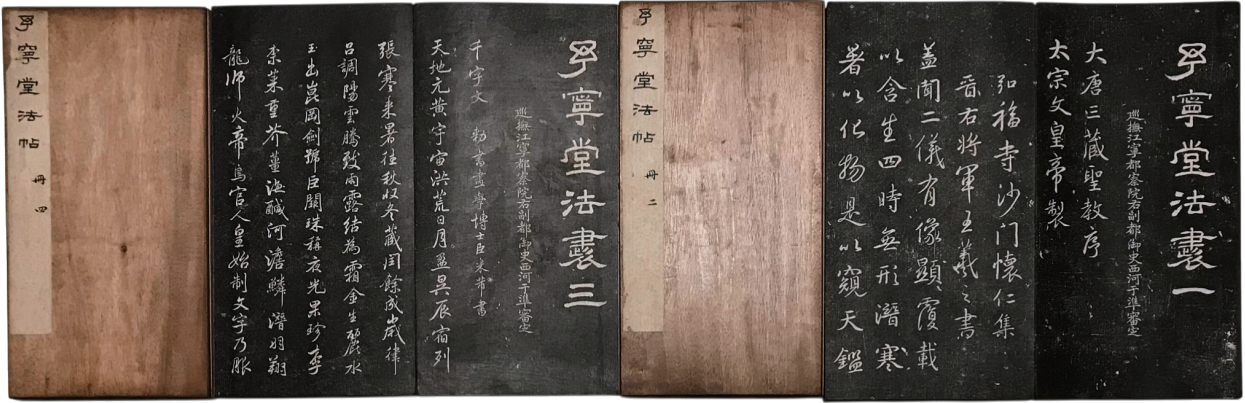 予寧堂法書一
巡撫江寧都察院右副都御史西河于準審定
大唐三藏聖教序
太宗文皇帝製
弘福寺沙門懷仁集
晉右將軍王羲之書
蓋聞二儀有像顯覆載
以含生四時無形潛寒
暑以化物是以窺天鑑
予寧堂法帖 冊二
予寧堂法書三
巡撫江寧都察院右副都御史西河于準審定
千字文 勅書畫學博士臣米芾書
天地元黃宇宙洪荒日月盈昃辰宿列
張寒來暑往秋収冬藏閏餘成歲律
呂調陽雲騰致雨露結為霜金生麗水
玉出崑岡劍號巨闕珠稱夜光果珍李
柰菜重芥薑海鹹河澹鱗潛羽翔
龍師火帝鳥官人皇始制文字乃服
予寧堂法帖 冊四